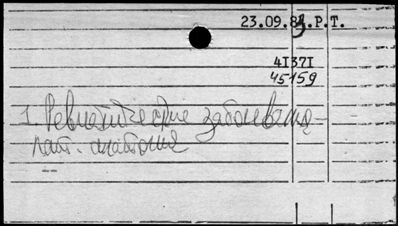 23.09.83.P.T.
41371
45159
1. Ревматические заболевания -
пат. анатомия